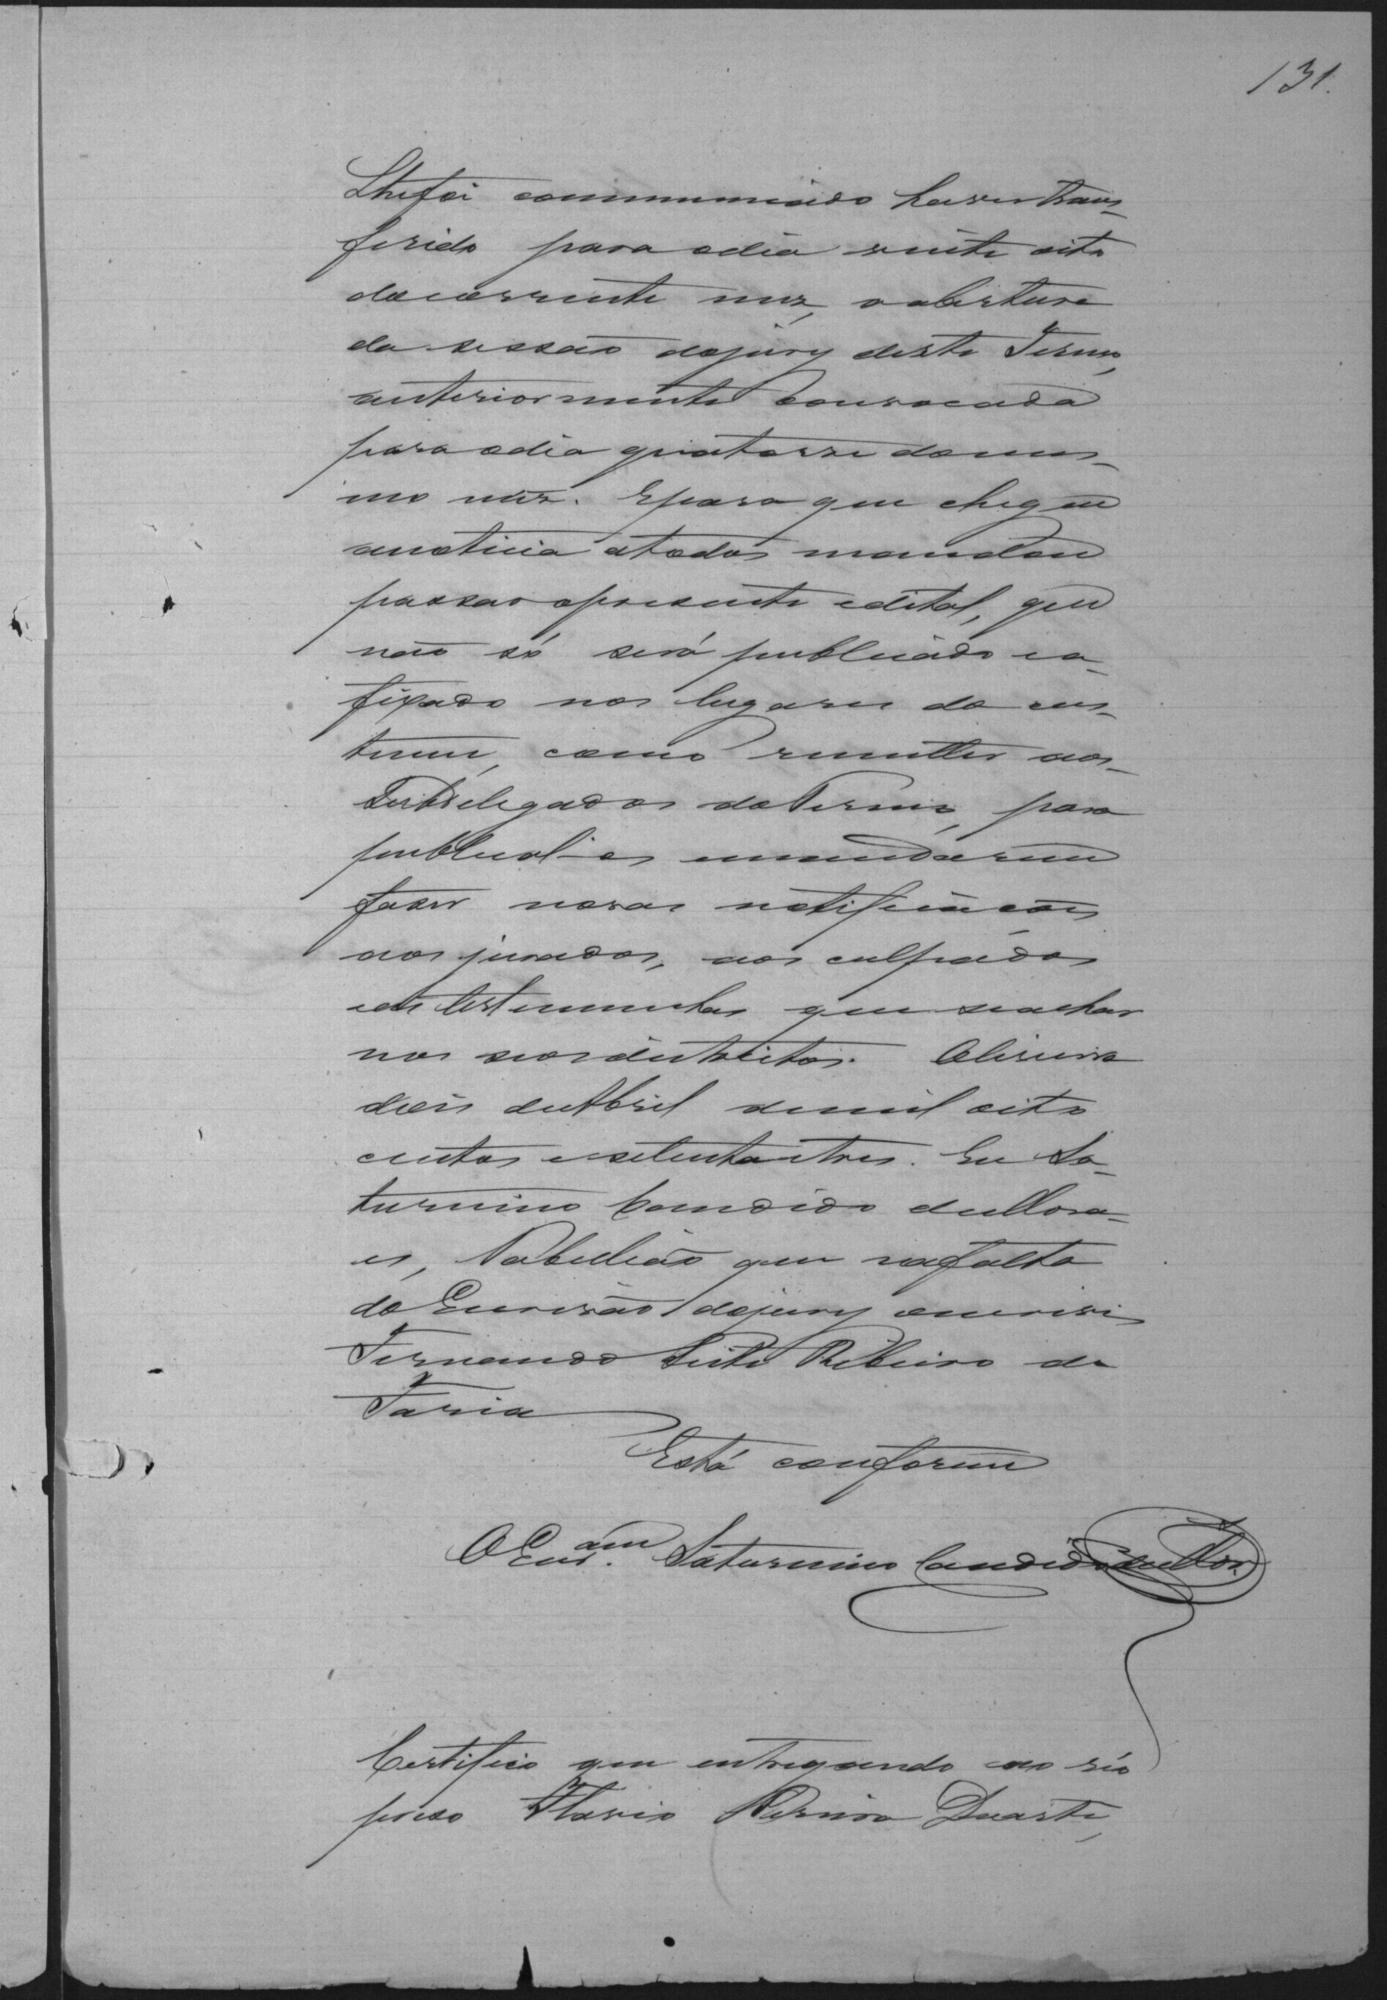 131.
Lhe foi communicado haver trans-
ferido para o dia vinte oito
do corrente mez, a abertura
da sessão do jury deste Termo,
anteriormente convocada
para o dia quatorze do mes-
mo mez. E para que chegue
a noticia a todos mandou
passar o presente edital, que
não só será publicado e a-
fixado nos lugares do cus-
tume, como remetter aos
Subdelegados do Termo, para
publical-os e mandarem
faser novas notificações
aos jurados, aos culpados
e às testemunhas que se achar
nos seos destrictos.
dois de Abril de mil oito
centos e setenta e tres. Eu Sa-
turnino Candido de Mora-
es, Tabellião que na falta
do Escrivão do jury o escrevi
Fernando Leite Ribeiro de
Faria
Está conforme
O Escr.am Saturnino Candido de Mor.
Certifico que entregando ao réo
preso Flavio Pereira Duarte,